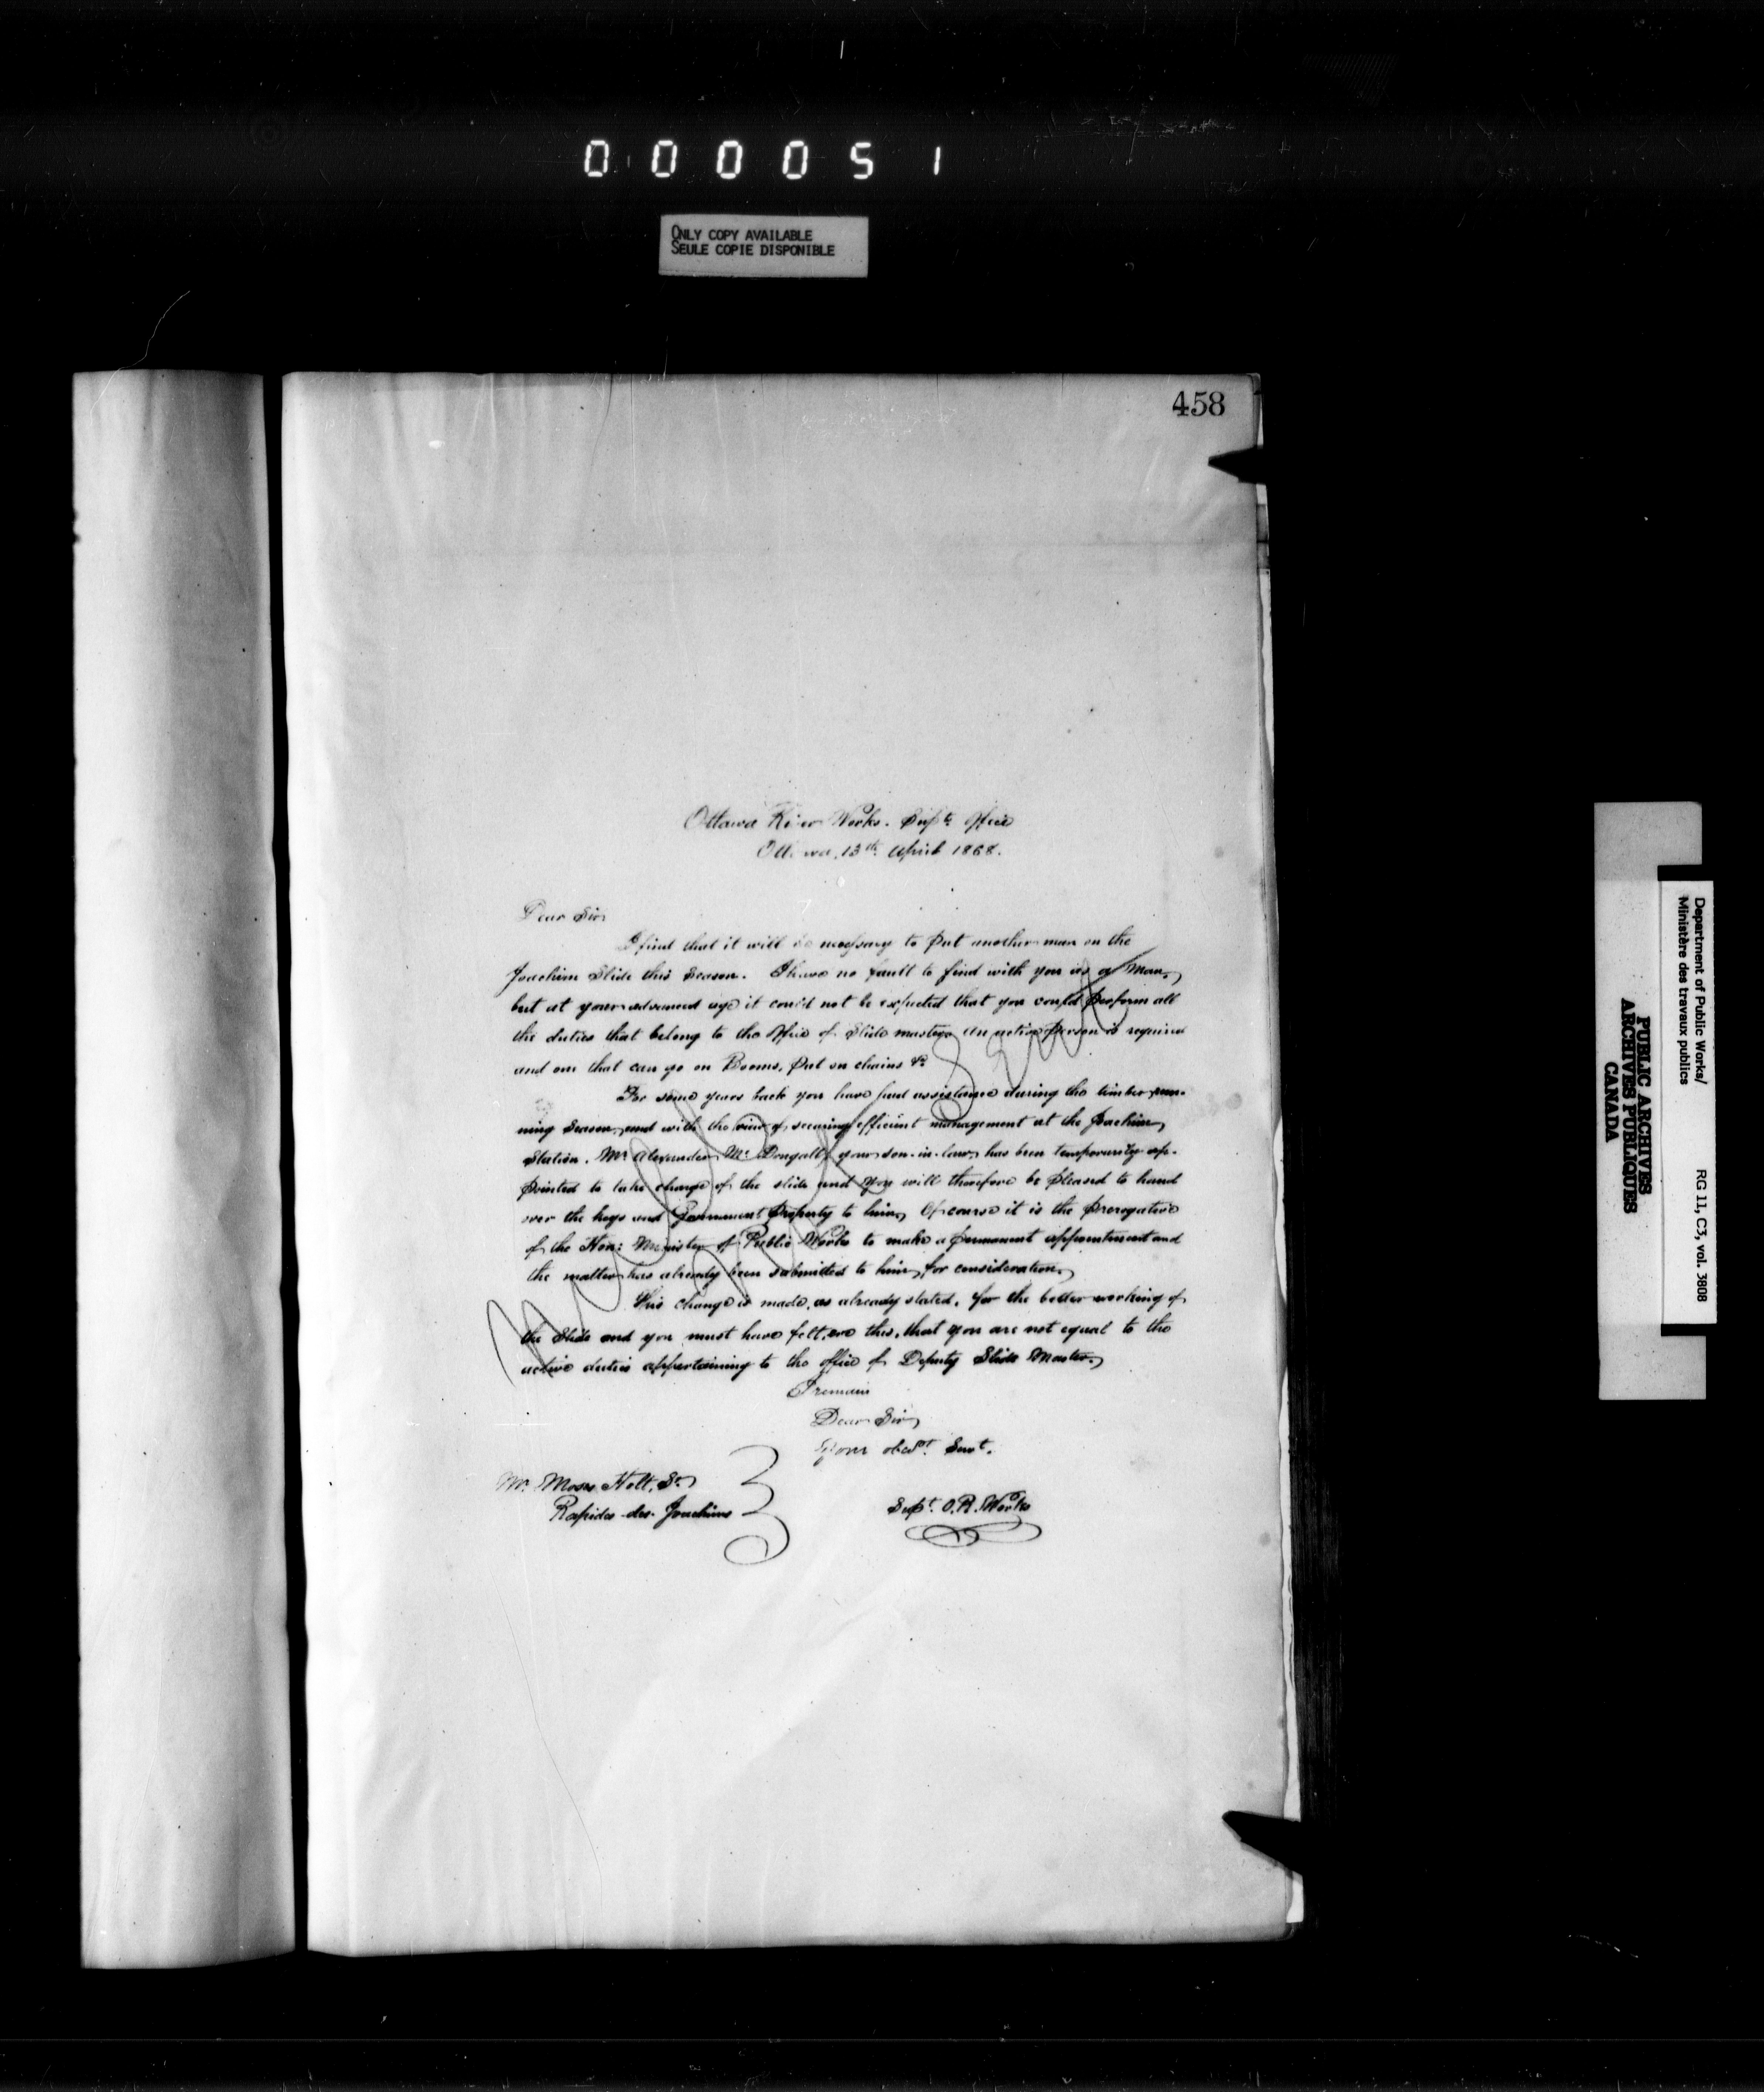 000051
ONLY COPY AVAILABLE
SEULE COPIE DISPONIBLE
458
Ottawa River Works. Supts. Office
Ottawa, 13th April 1868.
Dear Sir
I find that it will be necessary to put another man on the
Joachim Slide this Season. I have no fault to find with you as a Man,
but at your advanced age it could not be expected that you could perform all
the duties that belong to the Office of Slide master. An active person is required
and one that can go on Booms, put on chains &c
For some years back you have had assistance during the timber run-
ning Season, and with the view of securing efficient management at the Joachim
Station. Mr. Alexander McDougall, your son-in-law, has been temporarily ap-
pointed to take charge of the slide and you will therefore be pleased to hand
over the keys and Government property to him. Of course it is the prerogative
of the Hon: Minister of Public Works to make a permanent appointment and
the matter has already been submitted to him, for consideration.
This change is made, as already stated, for the better working of
the Slide and you must have felt, ere this, that you are not equal to the
active duties appertaining to the office of Deputy Slide Master.
I remain
Dear Sir,
Your obedt. Servt.
Mr. Moses Holt, Sr.
Rapides-des-Joachims
Supt. O.R. Works
Department of Public Works/
Ministère des travaux publics
RG 11, C3, vol. 3808
PUBLIC ARCHIVES
ARCHIVES PUBLIQUES
CANADA